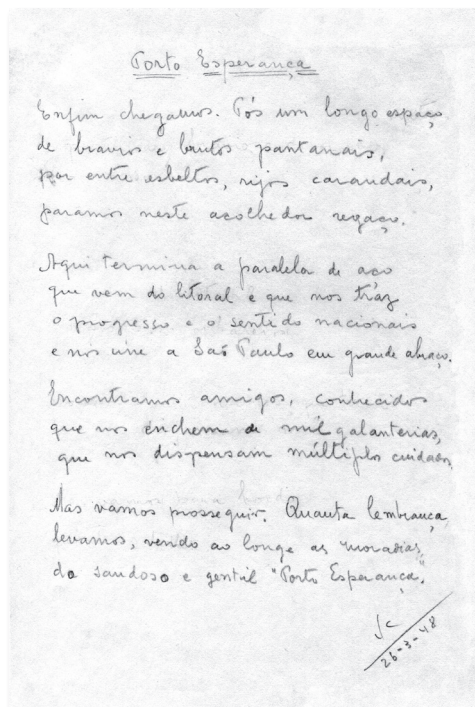 Porto Esperança
Enfim chegamos. Pós um longo espaço
de bravios e brutos pantanais,
por entre esbeltos, rijos carandais,
paramos neste acolhedor regaço.
Aqui termina a paralela de aço
que vem do litoral e que nos tráz
o progresso e o sentido nacionais
e nos une a São Paulo em grande abraço.
Encontramos amigos, conhecidos
que nos enchem de mil galanterias,
que nos dispensam múltiplos cuidados,
Mas vamos prosseguir. Quanta lembrança
levamos, vendo ao longe as moradias,
do saudoso e gentil "Porto Esperança".
26-3-48